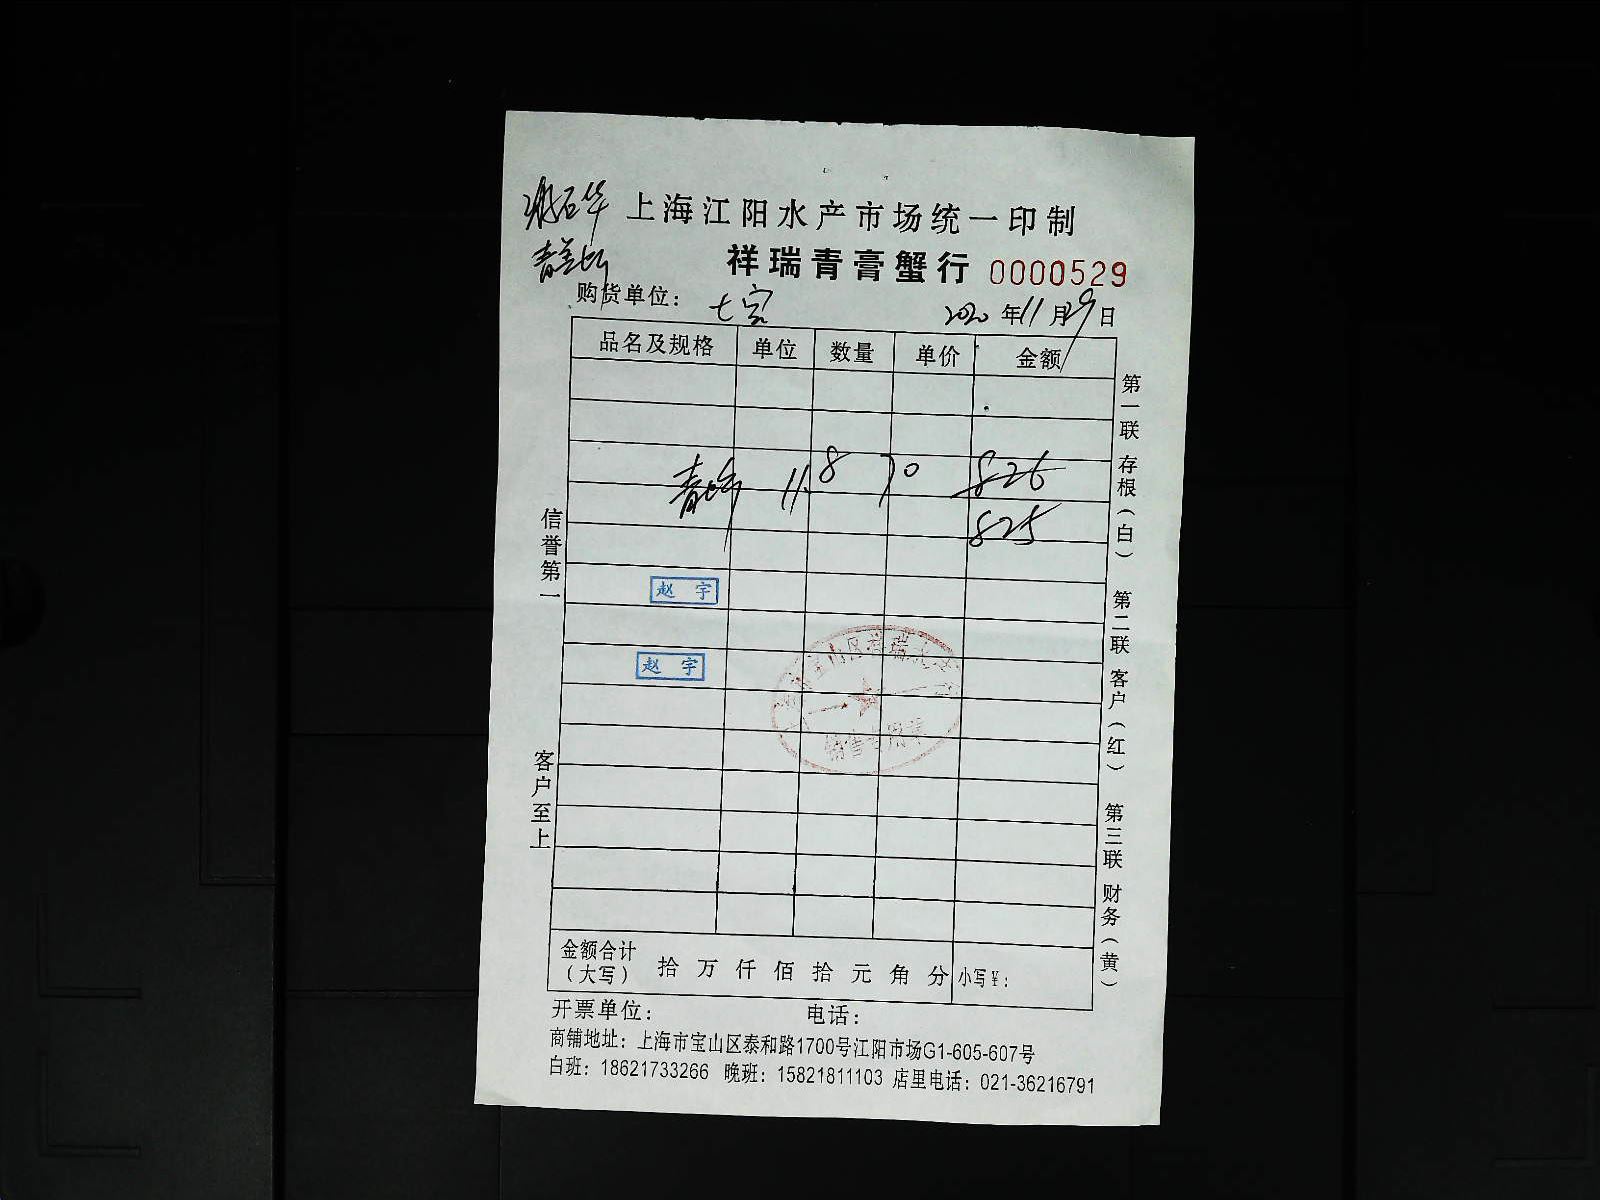 上海江阳水产市场统一印制
祥瑞青膏蟹行 0000529
购货单位： 七宝 2020 年 11 月 29 日
品名及规格 单位 数量 单价 金额
青 11.8 70 826
825
赵 宇
赵 宇
宝山区祥瑞水产
销售专用章
信誉第一
客户至上
第一联 存根（白） 第二联 客户（红） 第三联 财务（黄）
金额合计（大写） 拾 万 仟 佰 拾 元 角 分 小写￥：
开票单位： 电话：
商铺地址：上海市宝山区泰和路1700号江阳市场G1-605-607号
白班：18621733266 晚班：15821811103 店里电话：021-36216791